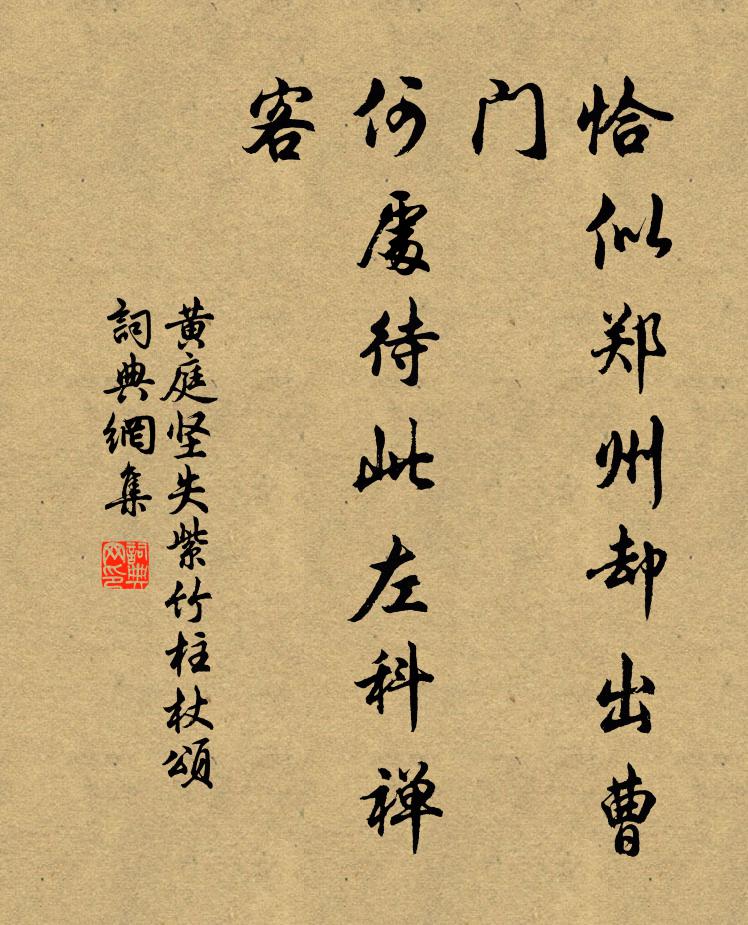 恰似郑州却出曹
门
何處待此左科禅
客
黄庭坚失紫竹柱杖頌
詞典網集
詞典网印